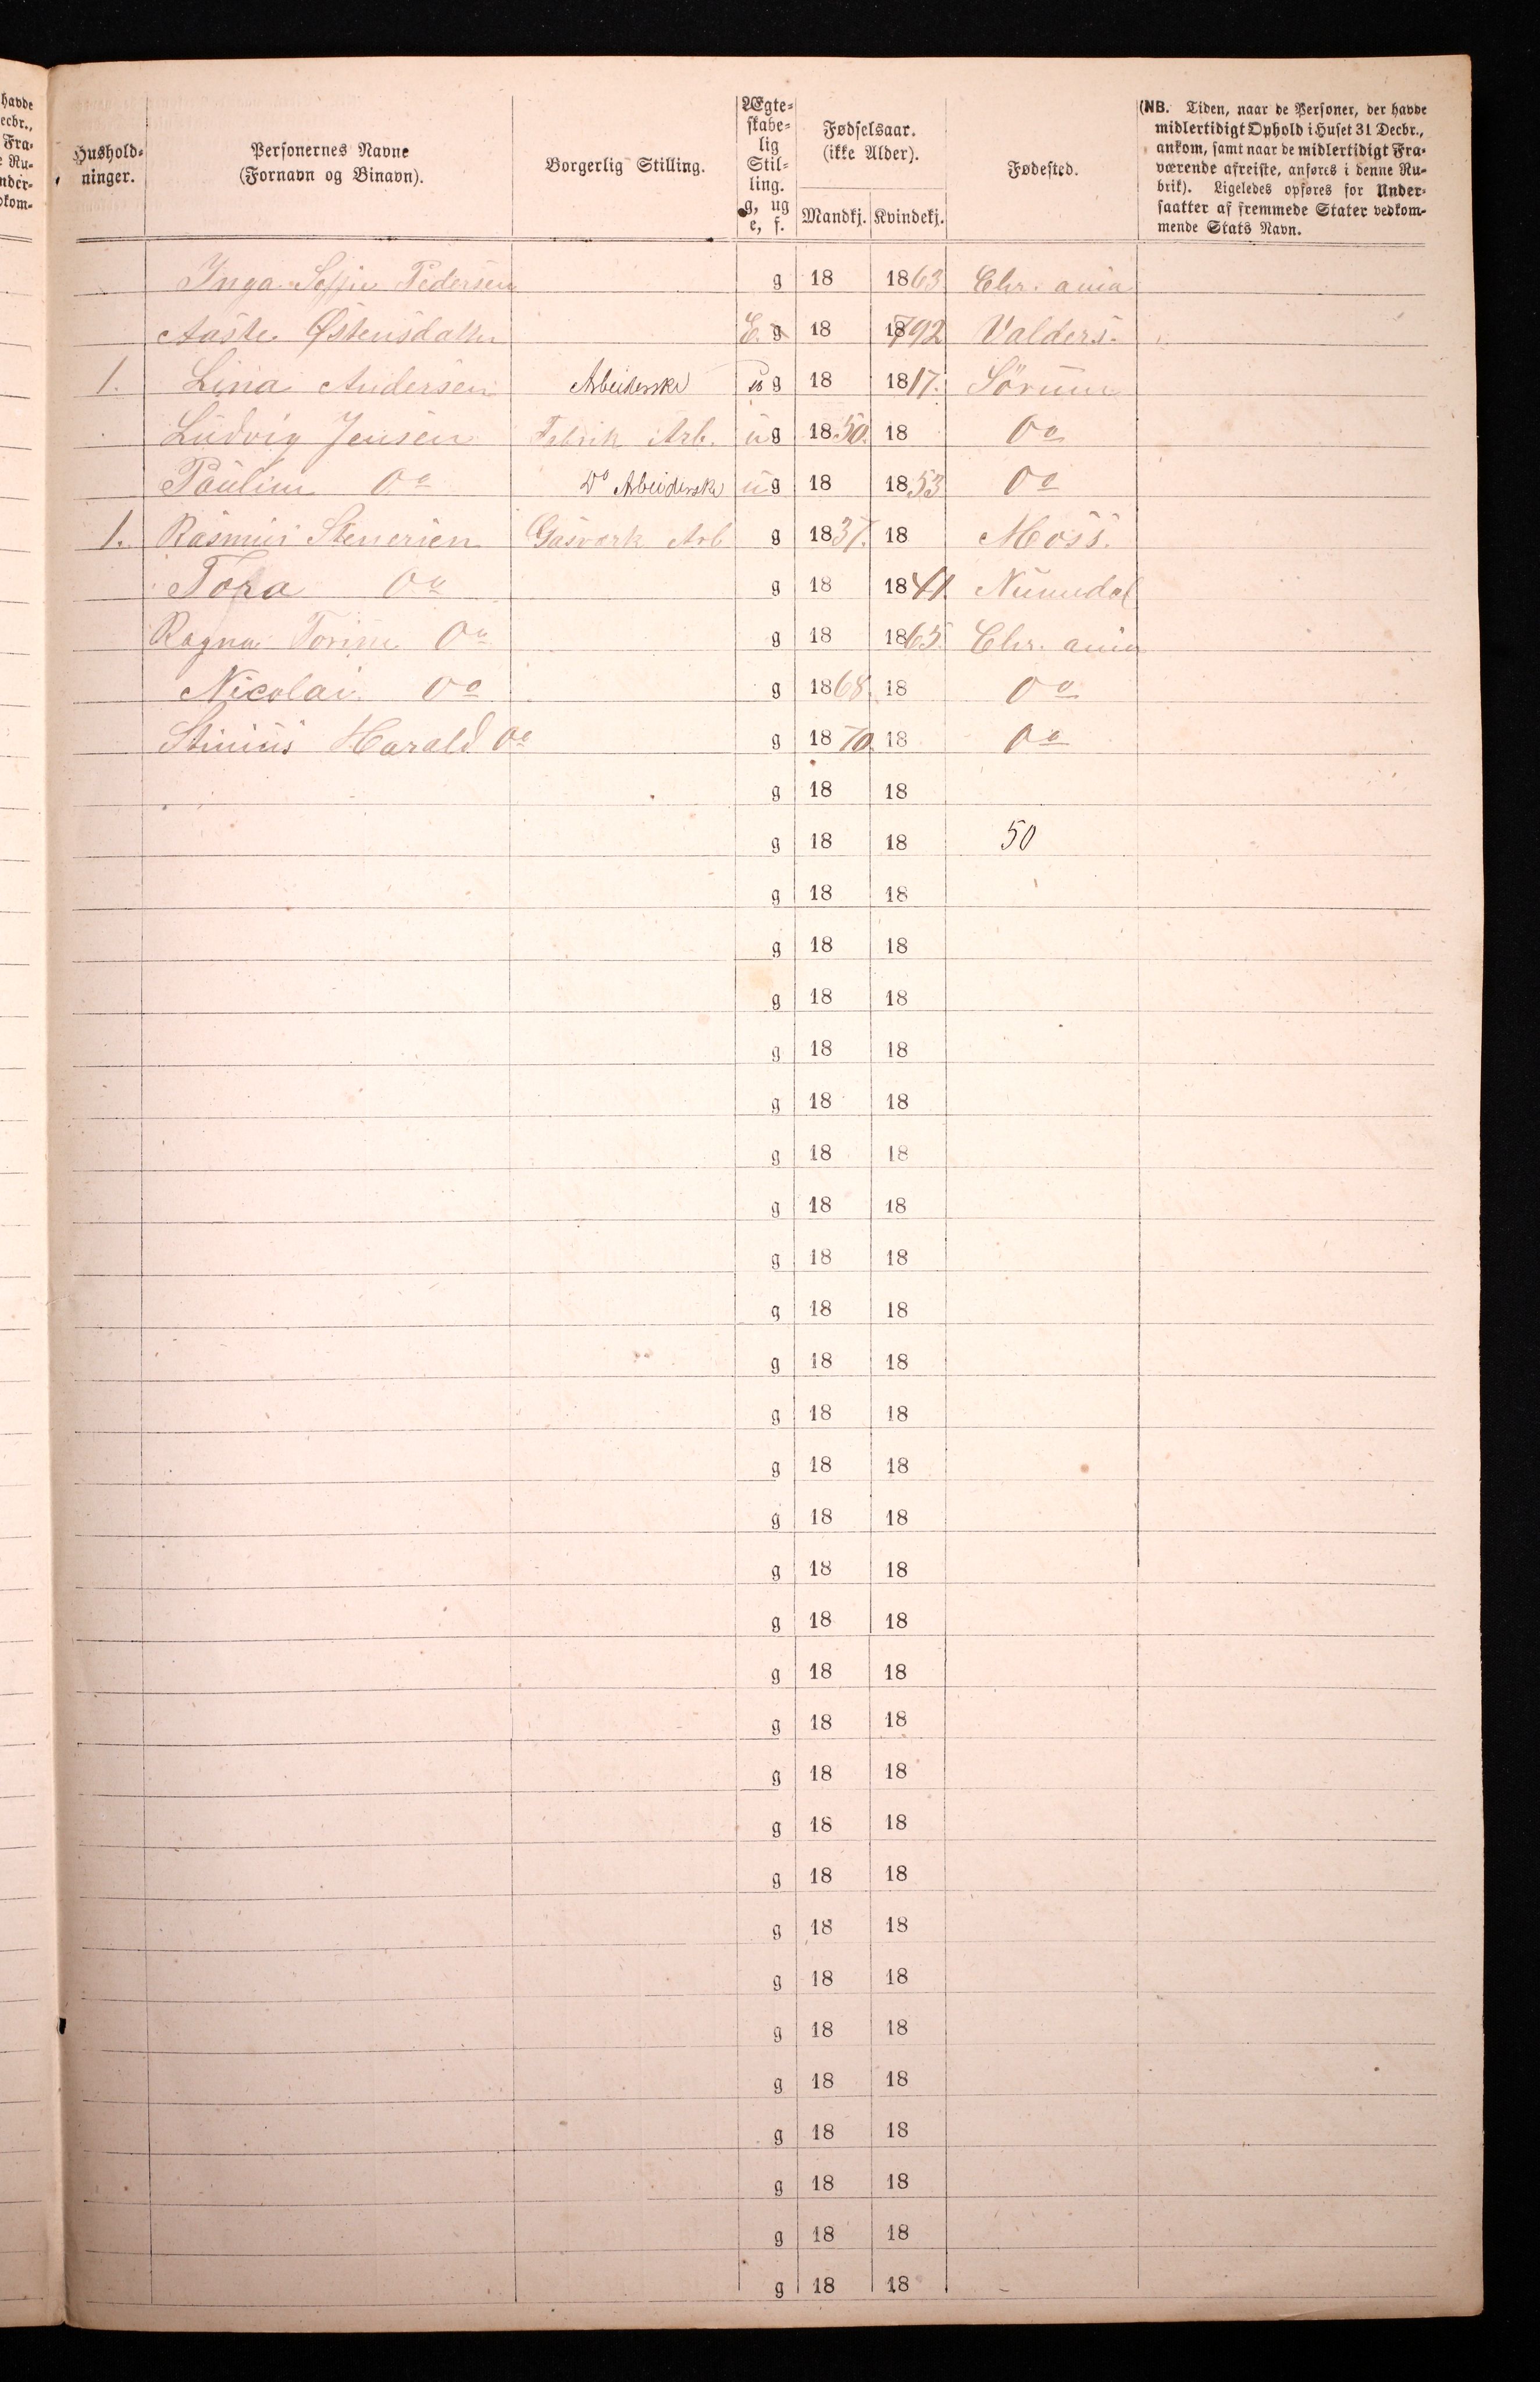 havde
ecbr.,
Fra-
e Ru-
nder-
dkom-
Hushold-
ninger.
Personernes Navne
(Fornavn og Binavn).
Borgerlig Stilling.
Ægte-
skabe-
lig
Stil-
ling.
g, ug
e, f.
Fødselsaar.
(ikke Alder).
Mandkj. Kvindekj.
Fødested.
(NB. Tiden, naar de Personer, der havde
midlertidigt Ophold i Huset 31 Decbr.,
ankom, samt naar de midlertidigt Fra-
værende afreiste, anføres i denne Ru-
brik). Ligeledes opføres for Under-
saatter af fremmede Stater vedkom-
mende Stats Navn.
Inga Pedersen g 18 1863 Chr. ania
Aaste Østensdatter E. g 18 1792 Valders.
1. Lina Andersen Arbeiderske g 18 1817. Sörum
Ludvig Jensen Fabrik Arb. u g 1850. 18 Do
Pauline Do Do Arbeiderske u g 18 1853 Do
1. Rasmus Stenersen Gasverk Arb g 1837. 18 Moss.
Tora Do g 18 1841. Numedal
Ragna Do g 18 1865. Chr. ania
Nicolai Do g 1868. 18 Do
Harald Do g 1870. 18 Do
g 18 18
g 18 18 50
g 18 18
g 18 18
g 18 18
g 18 18
g 18 18
g 18 18
g 18 18
g 18 18
g 18 18
g 18 18
g 18 18
g 18 18
g 18 18
g 18 18
g 18 18
g 18 18
g 18 18
g 18 18
g 18 18
g 18 18
g 18 18
g 18 18
g 18 18
g 18 18
g 18 18
g 18 18
g 18 18
g 18 18